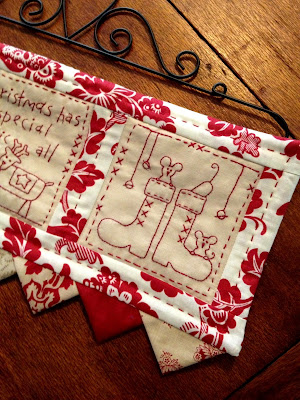 ristmas has
special
all